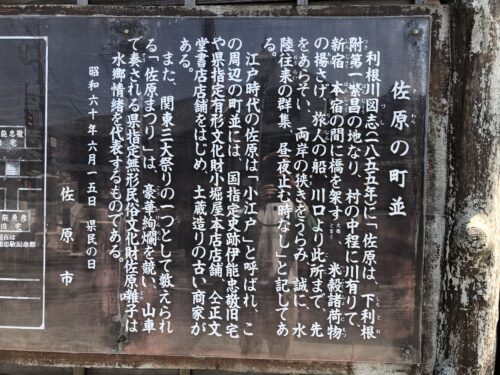 佐原の町並
利根川図志(一八五五年)に「佐原は、下利根
附第一繁昌の地なり、村の中程に川有りて、
新宿、本宿の間に橋を架す(大橋)、米穀諸荷物
の揚さげ、旅人の船、川口より此所まで、先
をあらそい、両岸の狭きをうらみ、誠に、水
陸往来の群集、昼夜止む時なし」と記してあ
る。
江戸時代の佐原は、「小江戸」と呼ばれ、こ
の周辺の町並には、国指定史跡伊能忠敬旧宅
や県指定有形文化財小堀屋本店店舗、仝正文
堂書店店舗をはじめ、土蔵造りの古い商家が
ある。
また、関東三大祭りの一つとして数えられ
る「佐原まつり」は、豪華絢爛を競い、山車
で奏される県指定無形民俗文化財佐原囃子は
水郷情緒を代表するものである。
昭和六十年六月一五日 県民の日
佐原市
能忠敬
旧宅
記念館